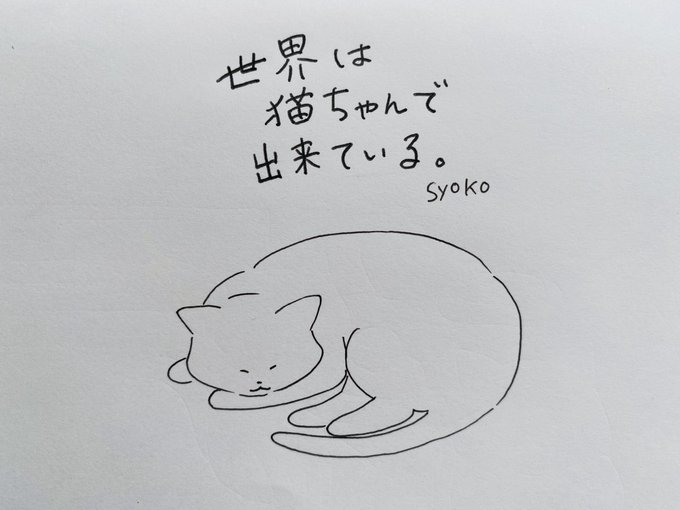 世界は
猫ちゃんで
出来ている。
SYOKO